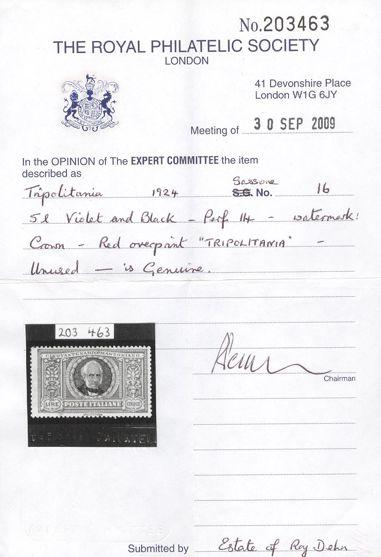 No. 203463
THE ROYAL PHILATELIC SOCIETY
LONDON
41 Devonshire Place
London W1G 6JY
Meeting of 30 SEP 2009
In the OPINION of The EXPERT COMMITTEE the item
described as
Sassone
Tripolitania 1924 S.G. No. 16
5l Violet and Black - Perf 14 - watermark:
Crown - Red overprint "TRIPOLITANIA" -
Unused - is Genuine.
203 463
POSTE ITALIANE
LIRE
Chairman
Submitted by Estate of Roy Dehn